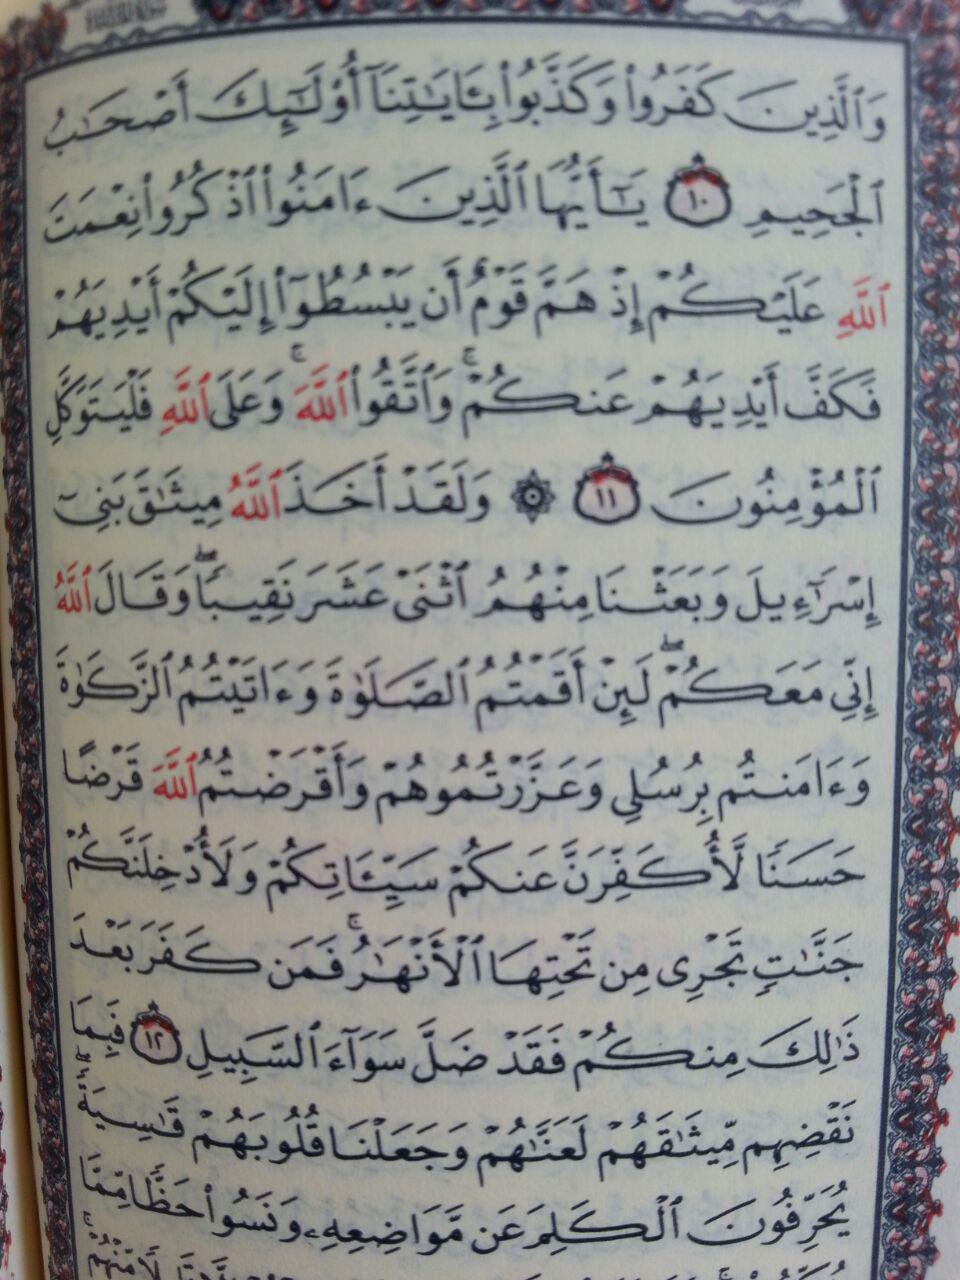 وَٱلَّذِينَ كَفَرُوا۟ وَكَذَّبُوا۟ بِـَٔايَـٰتِنَآ أُو۟لَـٰٓئِكَ أَصْحَـٰبُ
ٱلْجَحِيمِ ١٠ يَـٰٓأَيُّهَا ٱلَّذِينَ ءَامَنُوا۟ ٱذْكُرُوا۟ نِعْمَتَ
ٱللَّهِ عَلَيْكُمْ إِذْ هَمَّ قَوْمٌ أَن يَبْسُطُوٓا۟ إِلَيْكُمْ أَيْدِيَهُمْ
فَكَفَّ أَيْدِيَهُمْ عَنكُمْ ۚ وَٱتَّقُوا۟ ٱللَّهَ ۚ وَعَلَى ٱللَّهِ فَلْيَتَوَكَّلِ
ٱلْمُؤْمِنُونَ ١١ ۞ وَلَقَدْ أَخَذَ ٱللَّهُ مِيثَـٰقَ بَنِىٓ
إِسْرَٰٓءِيلَ وَبَعَثْنَا مِنْهُمُ ٱثْنَىْ عَشَرَ نَقِيبًا ۖ وَقَالَ ٱللَّهُ
إِنِّى مَعَكُمْ ۖ لَئِنْ أَقَمْتُمُ ٱلصَّلَوٰةَ وَءَاتَيْتُمُ ٱلزَّكَوٰةَ
وَءَامَنتُم بِرُسُلِى وَعَزَّرْتُمُوهُمْ وَأَقْرَضْتُمُ ٱللَّهَ قَرْضًا
حَسَنًا لَّأُكَفِّرَنَّ عَنكُمْ سَيِّـَٔاتِكُمْ وَلَأُدْخِلَنَّكُمْ
جَنَّـٰتٍ تَجْرِى مِن تَحْتِهَا ٱلْأَنْهَـٰرُ ۚ فَمَن كَفَرَ بَعْدَ
ذَٰلِكَ مِنكُمْ فَقَدْ ضَلَّ سَوَآءَ ٱلسَّبِيلِ ١٢ فَبِمَا
نَقْضِهِم مِّيثَـٰقَهُمْ لَعَنَّـٰهُمْ وَجَعَلْنَا قُلُوبَهُمْ قَـٰسِيَةً ۖ
يُحَرِّفُونَ ٱلْكَلِمَ عَن مَّوَاضِعِهِۦ ۙ وَنَسُوا۟ حَظًّا مِّمَّا